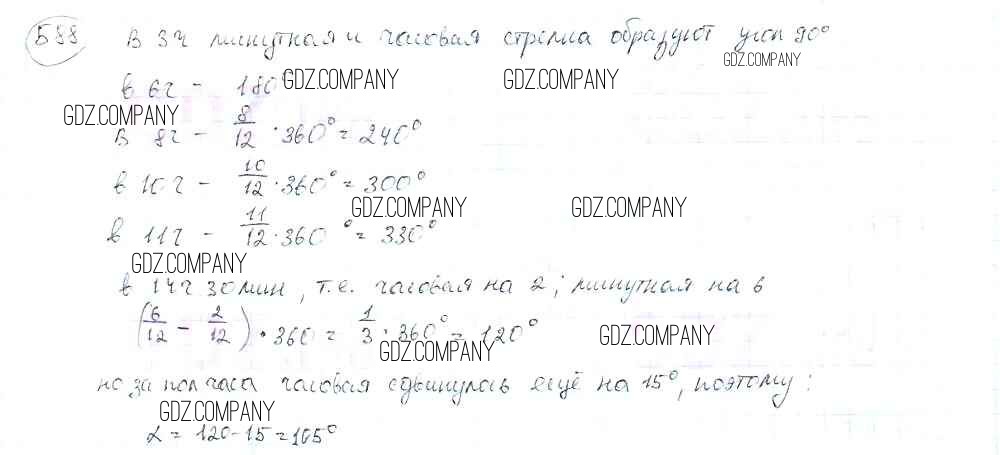 588 В 3ч минутная и часовая стрелка образуют угол 90°
GDZ.COMPANY
в 6ч – 180° GDZ.COMPANY GDZ.COMPANY
GDZ.COMPANY
в 8ч – 8/12 · 360° = 240°
в 10ч – 10/12 · 360° = 300°
GDZ.COMPANY GDZ.COMPANY
в 11ч – 11/12 · 360° = 330°
GDZ.COMPANY
в 14ч 30мин, т.е. часовая на 2; минутная на 6
(6/12 – 2/12) · 360 = 1/3 · 360° = 120°
GDZ.COMPANY GDZ.COMPANY
но за полчаса часовая сдвинулась ещё на 15°, поэтому:
GDZ.COMPANY
α = 120-15=105°